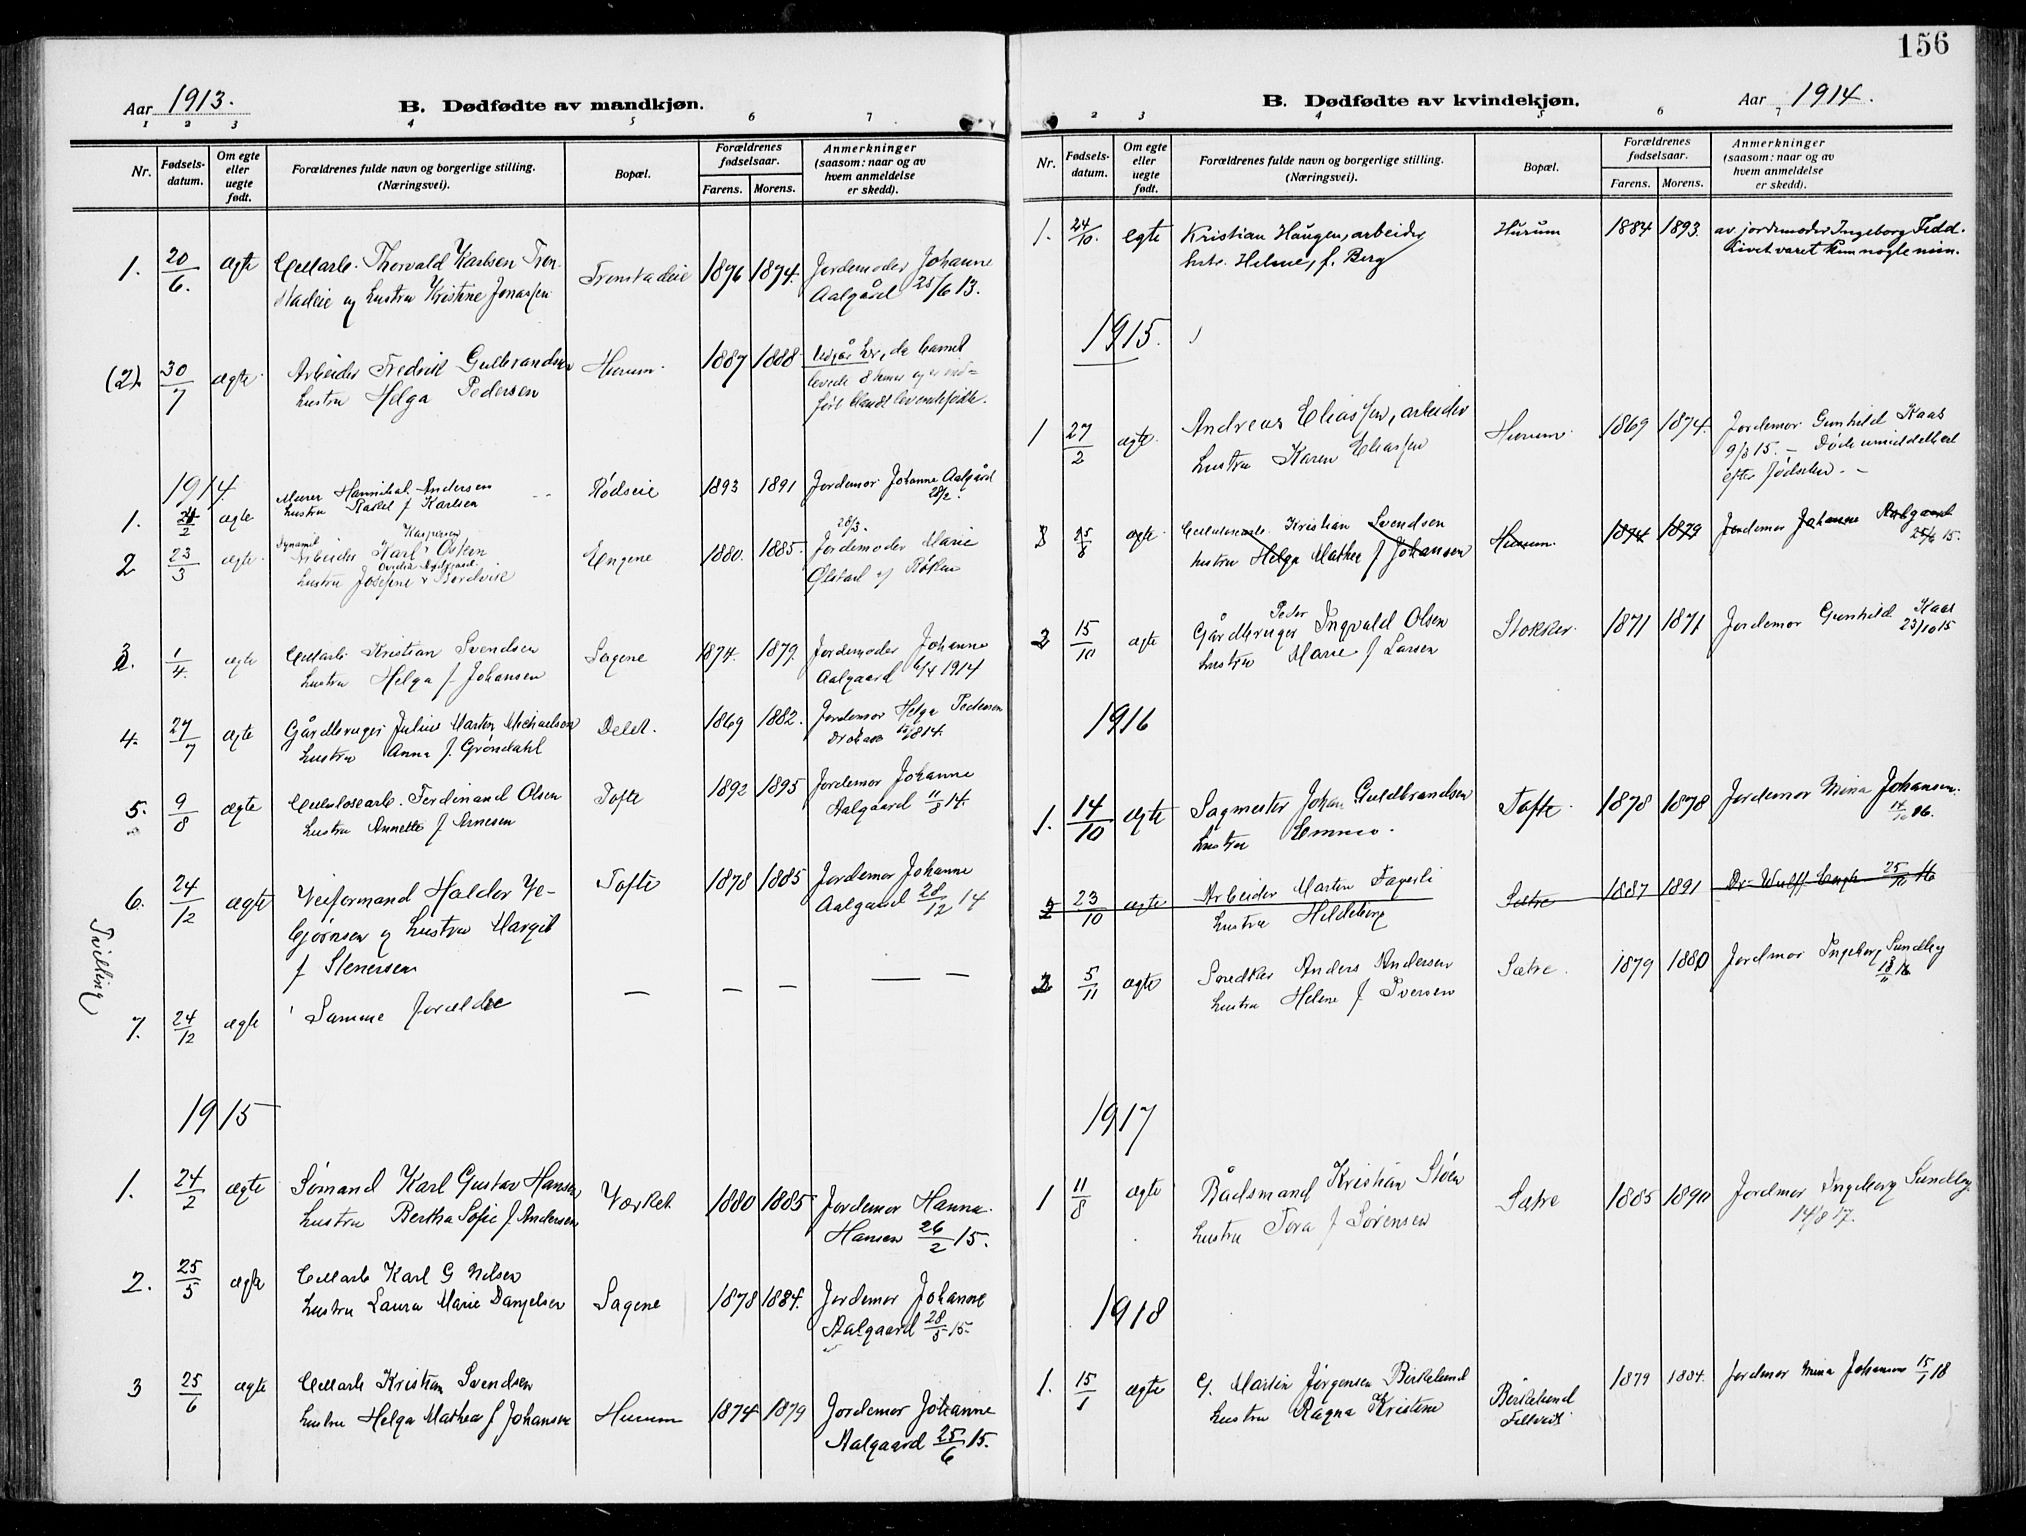 156
Aar 1913.
B. Dødfødte av mandkjøn.
1 2 3 4 5 6 7
Nr.
Fødsels-
datum.
Om egte
eller
uegte
født.
Forældrenes fulde navn og borgerlige stilling.
(Næringsvei).
Bopæl.
Forældrenes
fødselsaar.
Farens. Morens.
Anmerkninger
(saasom: naar og av
hvem anmeldelse
er skedd).
1. 20/6. ægte Cellarb. Thorvald Karlsen Tron- Tronstadeie 1876 1874. Jordemoder Johanne
stadeie og hustru Kristine Jonassen Aalgård 25/6 13.
(2). 30/7 ægte Arbeider Fredrik Gulbrandsen Hurum. 1887 1888. Udgår her, da barnet
hustru Helga Pedersen levede 8 timer og er ind=
ført blandt levendefødte.
1914.
1. 2/2 ægte Murer Hannibal Andersen Rødseie 1893 1891 Jordemor Johanne Aalgård
hustru Rakel f Karlsen 28/2.
2 23/3 ægte Dynamit Kaspersen
Arbeider Karl Osken Engene 1880. 1885. 28/3. Jordemoder Marie
hustru Josefine Bordvik Ølstad af Røken
3. 1/4. ægte Cellarb Kristian Svendsen Sagene 1874. 1879. Jordemoder Johanne
hustru Helga f. Johansen Aalgaard 6/4 1914
4. 27/7 ægte Gårdbruger Julius Martin Michaelsen Delet. 1869 1882. Jordemor Helga Pedersen
hustru Anna f. Grøndahl Drøbak 15/8 14.
5. 9/8 ægte Cellulosearb. Ferdinand Olsen Tofte 1892 1895 Jordemor Johanne
hustru Annette f Arnesen Aalgaard 11/8 14.
6. 24/12 ægte Veiformand Halder Ve- Tofte 1878 1885 Jordemor Johanne
bjørnsen og hustru Margit Aalgaard 28/12 14
f Stenersen
Tvilling
7. 24/12 ægte Samme forældre — — — — —
1915
1. 24/2 ægte Sømand Karl Gustav Hansen Værket 1880 1885 Jordemor Hanna
hustru Bertha Sofie f Andersen Hansen 26/2 15.
2. 25/5 ægte Cellarb Karl G Nilsen Sagene 1878 1884. Jordemor Johanne
hustru Laura Marie Danjelsen Aalgaard 28/5 15.
3 25/6 ægte Cellarb Kristian Svendsen
hustru Helga Mathea f Johansen Hurum 1874 1879 Jordemor Johanne
Aalgaard 25/6 15.
B. Dødfødte av kvindekjøn.
Aar 1914.
2 3 4 5 6 7
Nr.
Fødsels-
datum.
Om egte
eller
uegte
født.
Forældrenes fulde navn og borgerlige stilling.
(Næringsvei).
Bopæl.
Forældrenes
fødselsaar.
Farens. Morens.
Anmerkninger
(saasom: naar og av
hvem anmeldelse
er skedd).
1. 24/10. egte Kristian Haugen, arbeider Hurum 1884 1893. av jordemoder Ingeborg Fedd.
hstr. Helene, f. Berg Livet varet kun nogle min.
1915.
1 27/2 ægte. Andreas Eliassen, arbeider Hurum. 1869 1874. Jordemor Gunhild Kaas
hustru Karen Eliassen 9/3 15. – Døde umiddelbart
efter fødselen. –
25/8 ægte. Cellulosearb. Kristian Svendsen Hurum. 1874 1879 Jordemor Johanne Aalgaard
hustru Helga Mathea f Johansen 25/6 15.
2 15/10 ægte Gårdbruger Peder Ingvald Olsen Stokker. 1871 1871 Jordemor Gunhild Kaas
hustru Marie f Larsen 23/10 15
1916
1. 14/10 ægte Sagmester Johan Guldbrandsen Tofte. 1878 1878 Jordemor Mina Johansen.
hustru Emma. 14/10 16.
2 23/10 ægte Arbeider Martin Fagerli Sætre 1887 1891 Dr. Wulffsbergh 25/10 16
hustru Hildeborg
2 5/11 ægte Snedker Anders Andersen Sætre. 1879 1880 Jordmor Ingeborg Sundby
hustru Helene f Iversen 13/11 16
1917
1 11/8 ægte Bådsmand Kristian Støen Sætre 1885 1890 Jordmor Ingeborg Sundby.
hustru Tora f Sørensen 14/8 17.
1918
1. 15/1 ægte G. Martin Jørgensen Birkelund Birkelund 1879 1884. Jordemor Mina Johansen 15/1 18
hustru Ragna Kristine Filtvedt